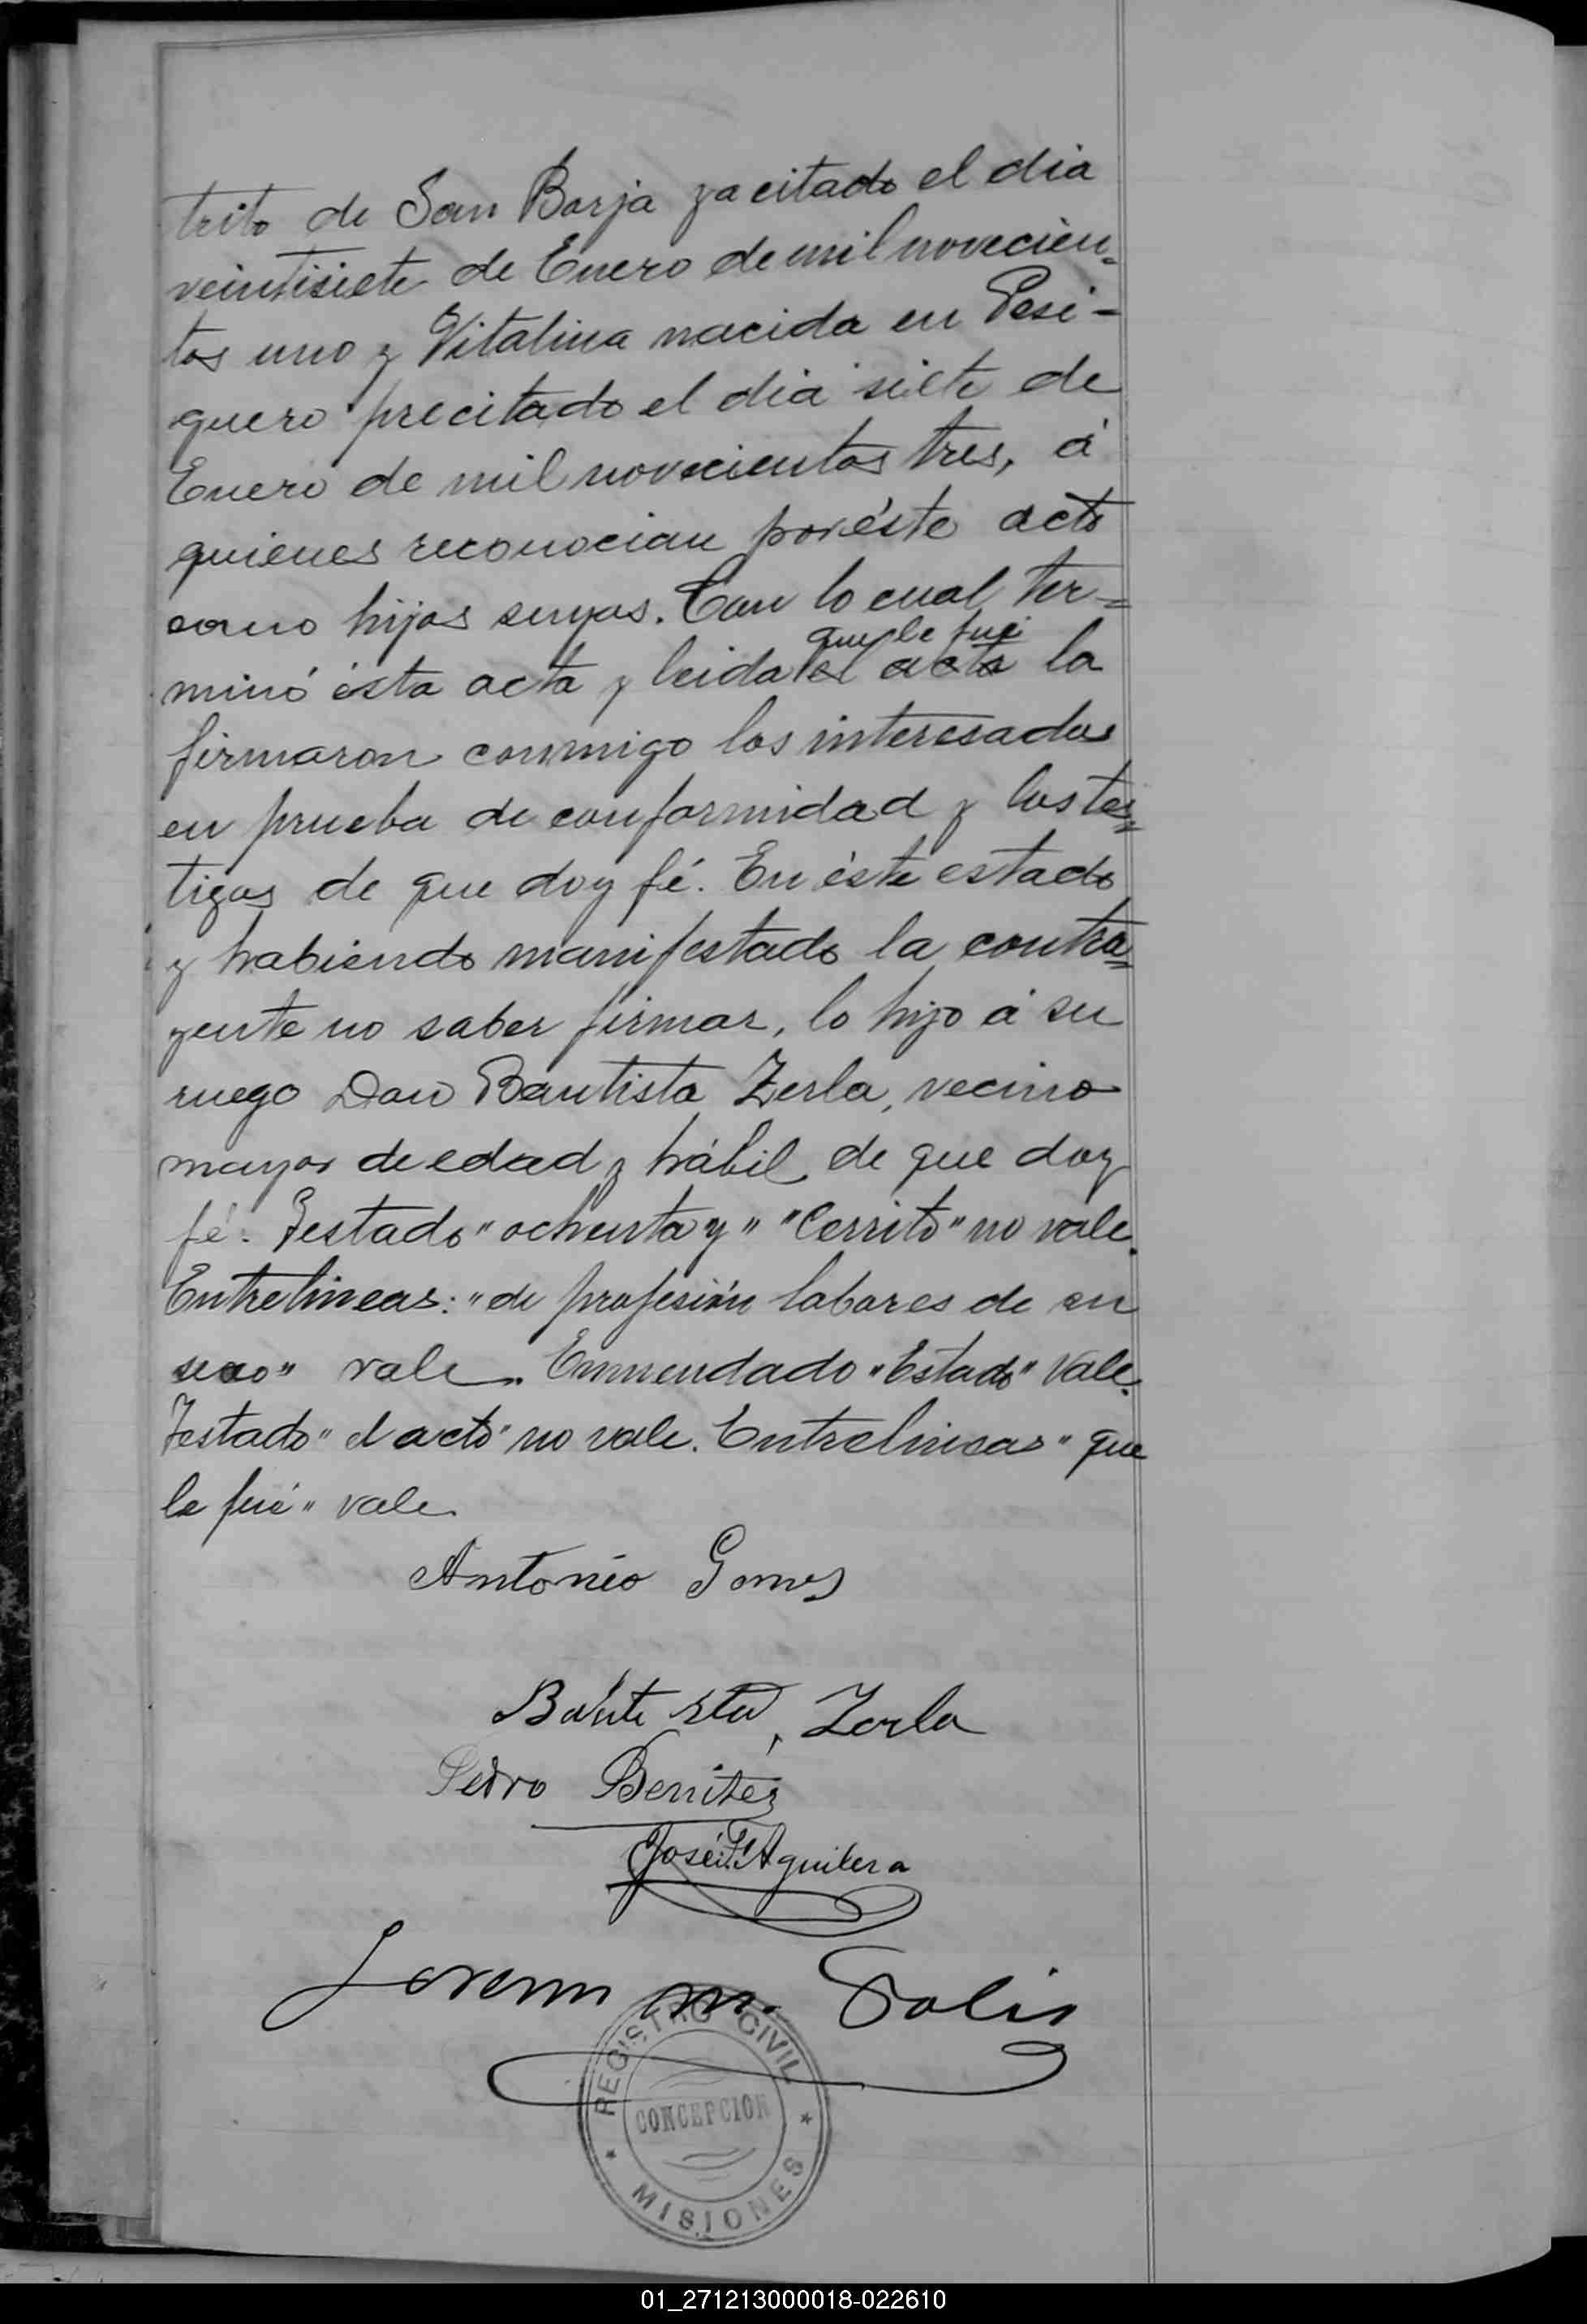 trito de San Borja ya citado el dia
veintisiete de Enero de mil novecien=
tos uno y Vitalina nacida en Pesi-
guero precitado el dia siete de
Enero de mil novecientos tres, á
quienes reconocian por éste acto
como hijos suyos. Con lo cual ter=
que le fué
minó ésta acta y leida el acto la
firmaron conmigo los interesados
en prueba de conformidad y los tes=
tigos de que doy fé. En éste estado
y habiendo manifestado la contra=
yente no saber firmar, lo hizo á su
ruego Don Bautista Zerla, vecino
mayor de edad y hábil de que doy
fé. Testado "ochenta y" "Cerrito" no vale.
Entrelineas: "de profesión labores de su
sexo" vale. Enmendado "Estado" Vale.
Testado "el acto" no vale. Entrelineas "que
le fué" vale
Antonio Gomes
Bautista Zerla
Pedro Benitez
José Aguilera
M. Solis
REGISTRO CIVIL
CONCEPCION
MISIONES
01_271213000018-022610